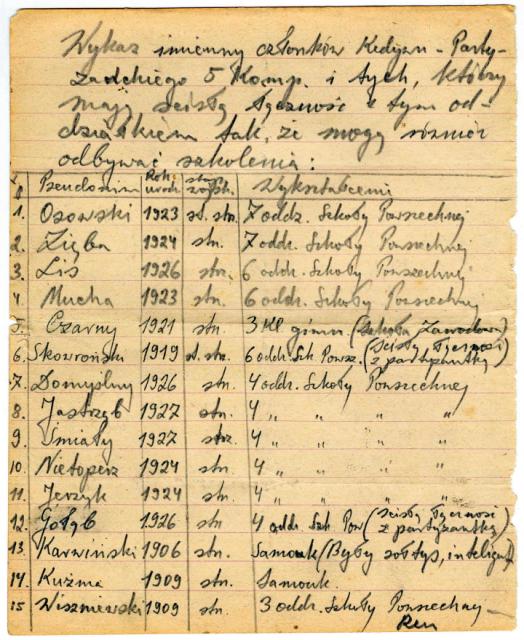 Wykaz imienny członków Kedywu - Party-
zanckiego 5 Komp. i tych, którzy
mają ścisłą łączność z tym od-
działkiem tak, że mogą również
odbywać szkolenia:
L.p. Pseudonim Rok urodz. stop. wojsk. Wykształcenie
1. Osowski 1923 st. str. 7 oddz. Szkoły Powszechnej
2. Zięba 1924 str. 7 oddz. Szkoły Powszechnej
3. Lis 1926 str. 6 oddz. Szkoły Powszechnej
4. Mucha 1923 str. 6 oddz. Szkoły Powszechnej
5. Czarny 1921 str. 3 Kl. gimn. (Szkoła Zawodowa)
6. Skowroński 1919 st. str. 6 oddz. Szk. Powsz. (ścisły łączność z partyzantką)
7. Domyślny 1926 str. 4 oddz. Szkoły Powszechnej
8. Jastrząb 1927 str. 4 " " "
9. Śmiały 1927 str. 4 " " "
10. Nietoperz 1924 str. 4 " " "
11. Jerzyk 1924 str. 4 " " "
12. Gołąb 1926 str. 4 oddz. Szk. Pow. (ścisły łączność z partyzantką)
13. Karwiński 1906 str. Samouk (Były sołtys, inteligent)
14. Kuźma 1909 str. Samouk.
15 Wiszniewski 1909 str. 3 oddz. Szkoły Powszechnej